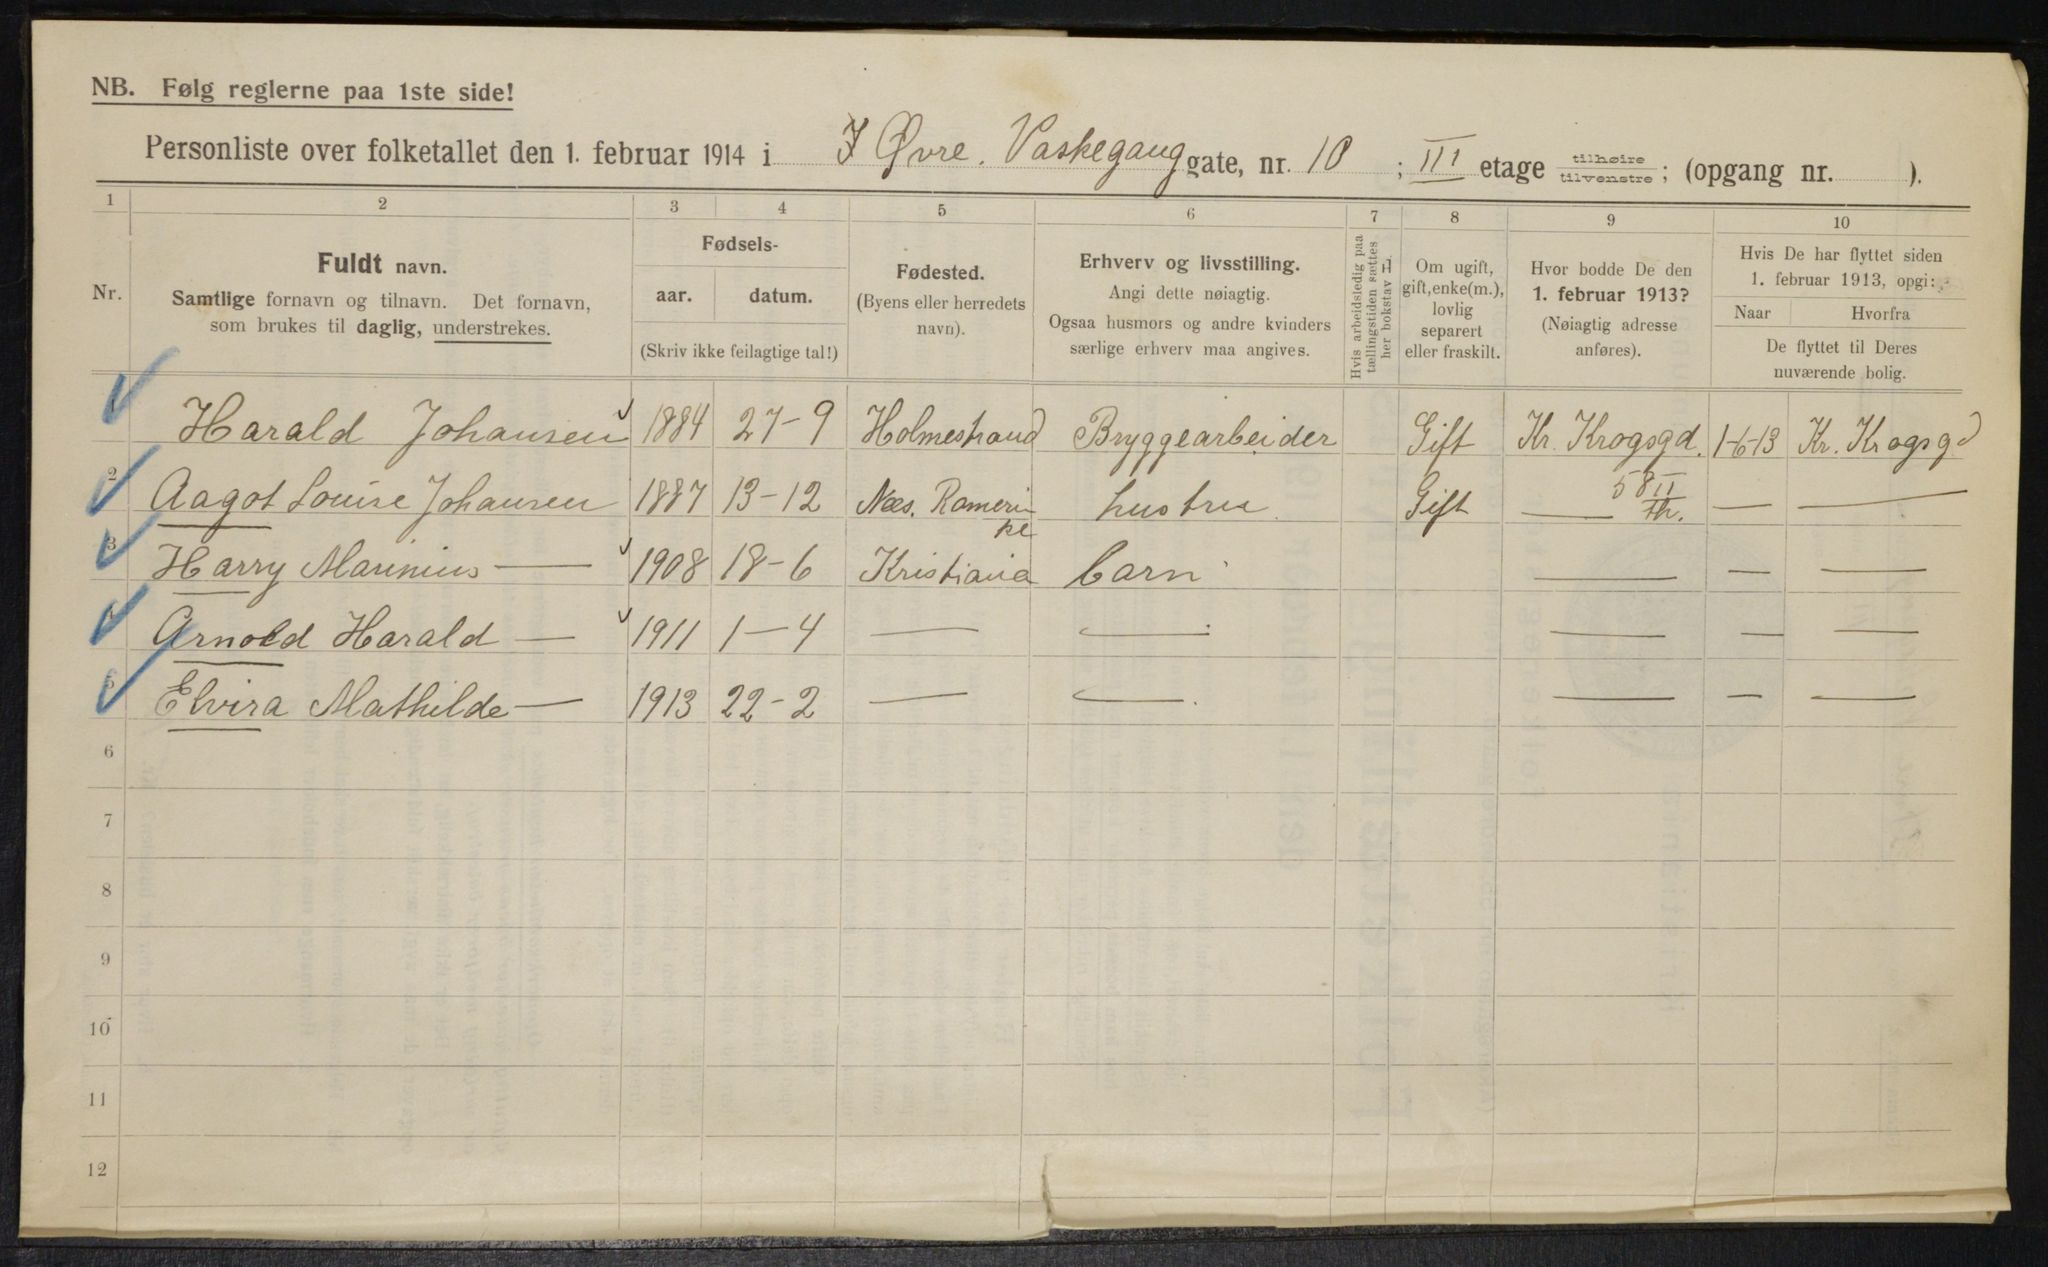 NB. Følg reglerne paa 1ste side!
Personliste over folketallet den 1. februar 1914 i Øvre. Vaskegang gate, nr. 10 ; III etage tilhøire tilvenstre ; (opgang nr. ).
1 2 3 4 5 6 7 8 9 10
Nr.
Fuldt navn.
Samtlige fornavn og tilnavn. Det fornavn,
som brukes til daglig, understrekes.
Fødsels-
aar. datum.
(Skriv ikke feilagtige tal!)
Fødested.
(Byens eller herredets
navn).
Erhverv og livsstilling.
Angi dette nøiagtig.
Ogsaa husmors og andre kvinders
særlige erhverv maa angives.
Hvis arbeidsledig paa
tællingstiden sættes
her bokstav L
Om ugift,
gift, enke(m.),
lovlig
separert
eller fraskilt.
Hvor bodde De den
1. februar 1913?
(Nøiagtig adresse
anføres).
Hvis De har flyttet siden
1. februar 1913, opgi:
Naar Hvorfra
De flyttet til Deres
nuværende bolig.
1 Harald Johansen 1884 27-9 Holmestrand Bryggearbeider Gift Kr. Krogsgd. 1-6-13 Kr. Krogsgd
2 Aagot Louise Johansen 1887 13-12 Næs. Romerike hustru Gift — 58 II th. — —
3 Harry Marinius — 1908 18-6 Kristiania barn — — —
4 Arnold Harald — 1911 1-4 — — — — —
5 Elvira Mathilde — 1913 22-2 — — — — —
6
7
8
9
10
11
12